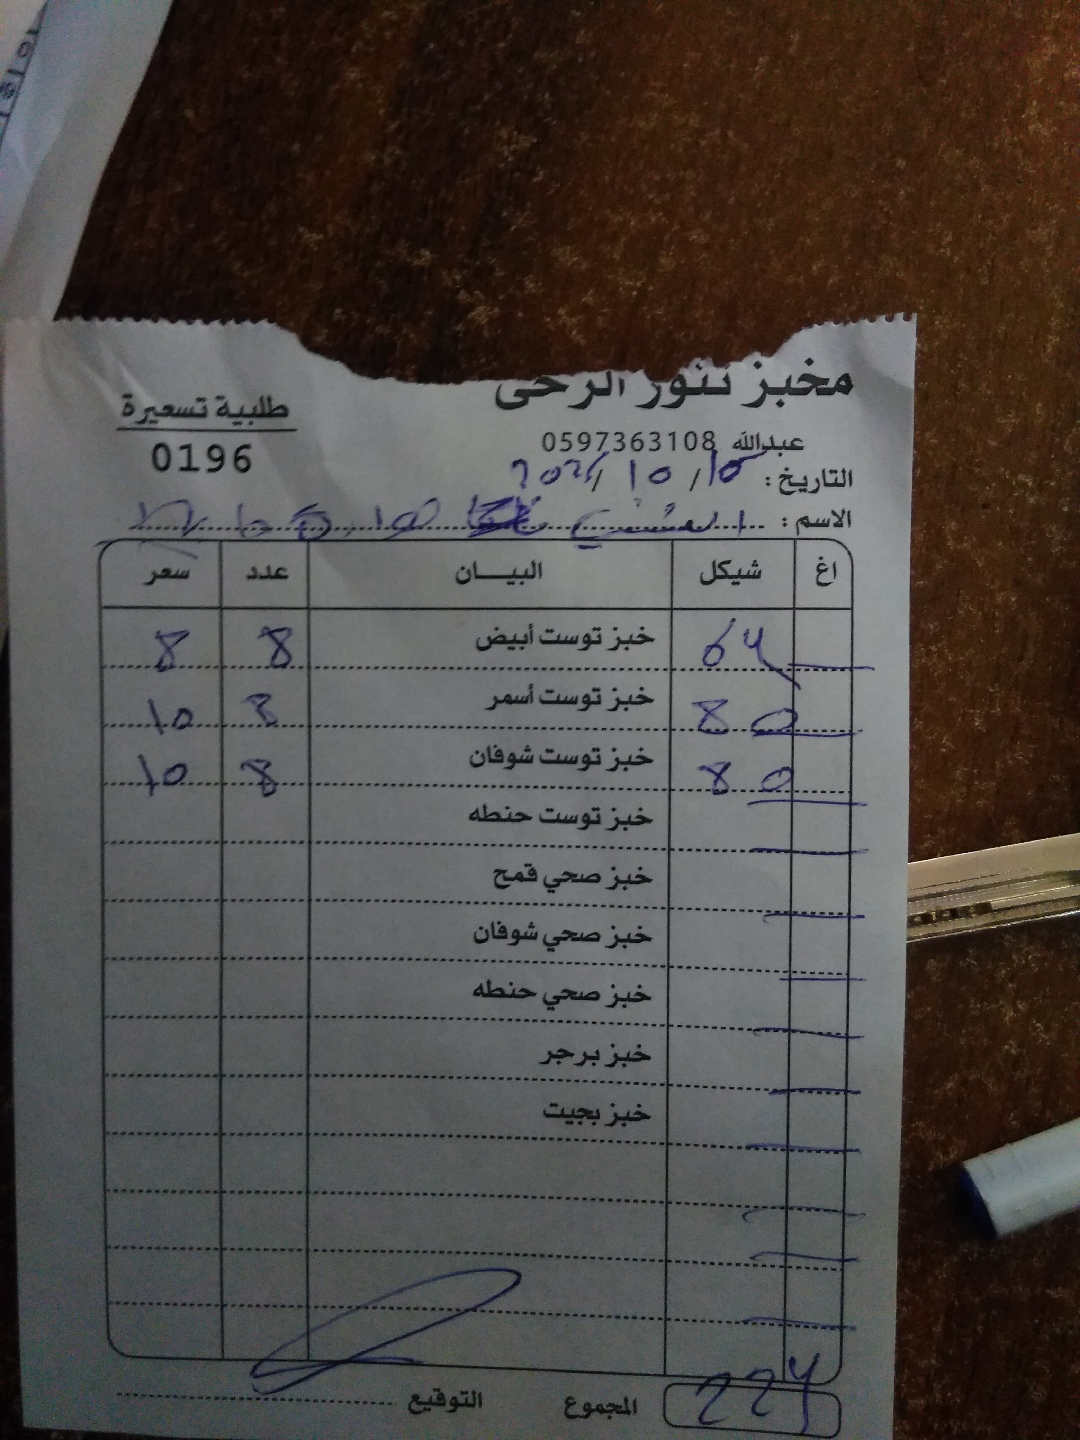 مخبز تنور الرحى
طلبية تسعيرة
0196
عبدالله 0597363108
التاريخ: 15/10/
الاسم:
اغ شيكل البيـــان عدد سعر
64 خبز توست أبيض 8 8
80 خبز توست أسمر 8 10
80 خبز توست شوفان 8 10
خبز توست حنطه
خبز صحي قمح
خبز صحي شوفان
خبز صحي حنطه
خبز برجر
خبز بجيت
224 المجموع التوقيع